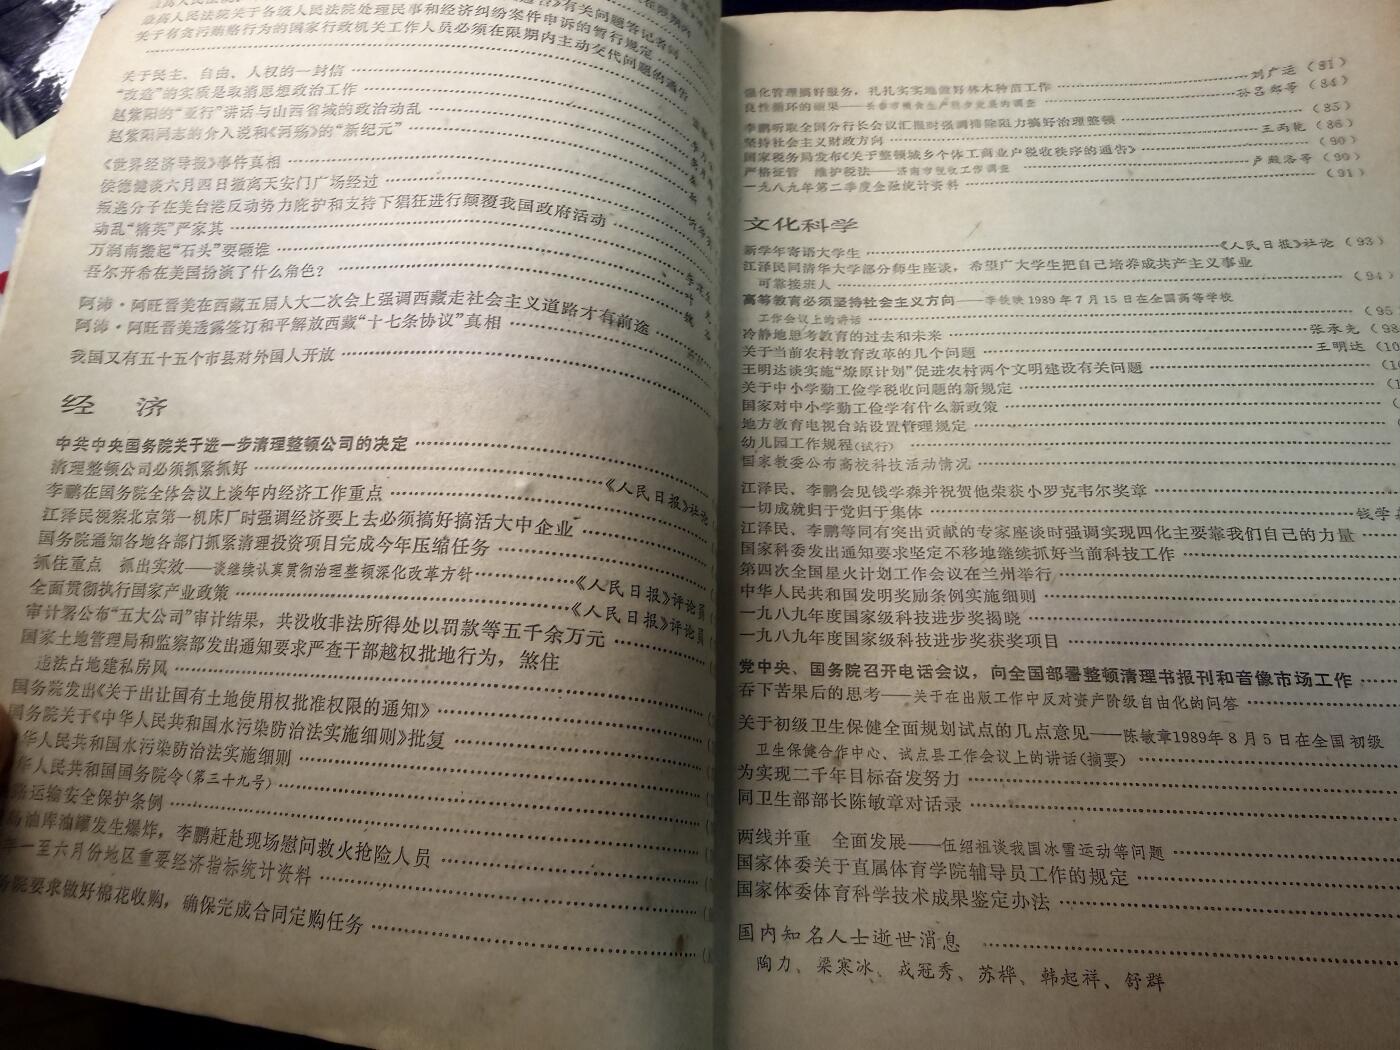 最高人民法院关于各级人民法院处理民事和经济纠纷案件申诉的暂行规定
关于有贪污贿赂行为的国家行政机关工作人员必须在限期内主动交代问题的通告
关于民主、自由、人权的一封信
“改造”的实质是取消思想政治工作
赵紫阳的“亚行”讲话与山西省城的政治动乱
赵紫阳同志的介入说和《河殇》的“新纪元”
《世界经济导报》事件真相
侯德健谈六月四日撤离天安门广场经过
叛逃分子在美台港反动势力庇护和支持下猖狂进行颠覆我国政府活动
动乱“精英”严家其
万润南搬起“石头”要砸谁
吾尔开希在美国扮演了什么角色？
阿沛·阿旺晋美在西藏五届人大二次会上强调西藏走社会主义道路才有前途
阿沛·阿旺晋美透露签订和平解放西藏“十七条协议”真相
我国又有五十五个市县对外国人开放
经 济
中共中央国务院关于进一步清理整顿公司的决定
清理整顿公司必须抓紧抓好 《人民日报》社论
李鹏在国务院全体会议上谈年内经济工作重点
江泽民视察北京第一机床厂时强调经济要上去必须搞好搞活大中企业
国务院通知各地各部门抓紧清理投资项目完成今年压缩任务
抓住重点 抓出实效——谈继续认真贯彻治理整顿深化改革方针 《人民日报》评论员
全面贯彻执行国家产业政策 《人民日报》评论员
审计署公布“五大公司”审计结果，共没收非法所得处以罚款等五千余万元
国家土地管理局和监察部发出通知要求严查干部越权批地行为，煞住
违法占地建私房风
国务院发出《关于出让国有土地使用权批准权限的通知》
国务院关于《中华人民共和国水污染防治法实施细则》批复
华人民共和国水污染防治法实施细则
华人民共和国国务院令（第三十九号）
运输安全保护条例
油库油罐发生爆炸，李鹏赶赴现场慰问救火抢险人员
一至六月份地区重要经济指标统计资料
院要求做好棉花收购，确保完成合同定购任务
强化管理搞好服务，扎扎实实地做好林木种苗工作 刘广运（81）
良性循环的硕果——长春市粮食生产稳步发展的调查 孙吕郎等（84）
李鹏听取全国分行长会议汇报时强调排除阻力搞好治理整顿 （85）
坚持社会主义财政方向 王丙乾（86）
国家税务局发布《关于整顿城乡个体工商业户税收秩序的通告》 （90）
严格征管 维护税法——济南市税收工作调查 卢殿洛等（90）
一九八九年第二季度金融统计资料 （91）
文化科学
新学年寄语大学生 《人民日报》社论（93）
江泽民同清华大学部分师生座谈，希望广大学生把自己培养成共产主义事业
可靠接班人 （94）
高等教育必须坚持社会主义方向——李铁映1989年7月15日在全国高等学校
工作会议上的讲话 （95
冷静地思考教育的过去和未来 张承先（98
关于当前农村教育改革的几个问题 王明达（10
王明达谈实施“燎原计划”促进农村两个文明建设有关问题 （10
关于中小学勤工俭学税收问题的新规定 （1
国家对中小学勤工俭学有什么新政策 （
地方教育电视台站设置管理规定
幼儿园工作规程（试行）
国家教委公布高校科技活动情况
江泽民、李鹏会见钱学森并祝贺他荣获小罗克韦尔奖章
一切成就归于党归于集体 钱学
江泽民、李鹏等同有突出贡献的专家座谈时强调实现四化主要靠我们自己的力量
国家科委发出通知要求坚定不移地继续抓好当前科技工作
第四次全国星火计划工作会议在兰州举行
中华人民共和国发明奖励条例实施细则
一九八九年度国家级科技进步奖揭晓
一九八九年度国家级科技进步奖获奖项目
党中央、国务院召开电话会议，向全国部署整顿清理书报刊和音像市场工作
吞下苦果后的思考——关于在出版工作中反对资产阶级自由化的问答
关于初级卫生保健全面规划试点的几点意见——陈敏章1989年8月5日在全国初级
卫生保健合作中心、试点县工作会议上的讲话（摘要）
为实现二千年目标奋发努力
同卫生部部长陈敏章对话录
两线并重 全面发展——伍绍祖谈我国冰雪运动等问题
国家体委关于直属体育学院辅导员工作的规定
国家体委体育科学技术成果鉴定办法
国内知名人士逝世消息
陶力、梁寒冰、戎冠秀、苏桦、韩起祥、舒群